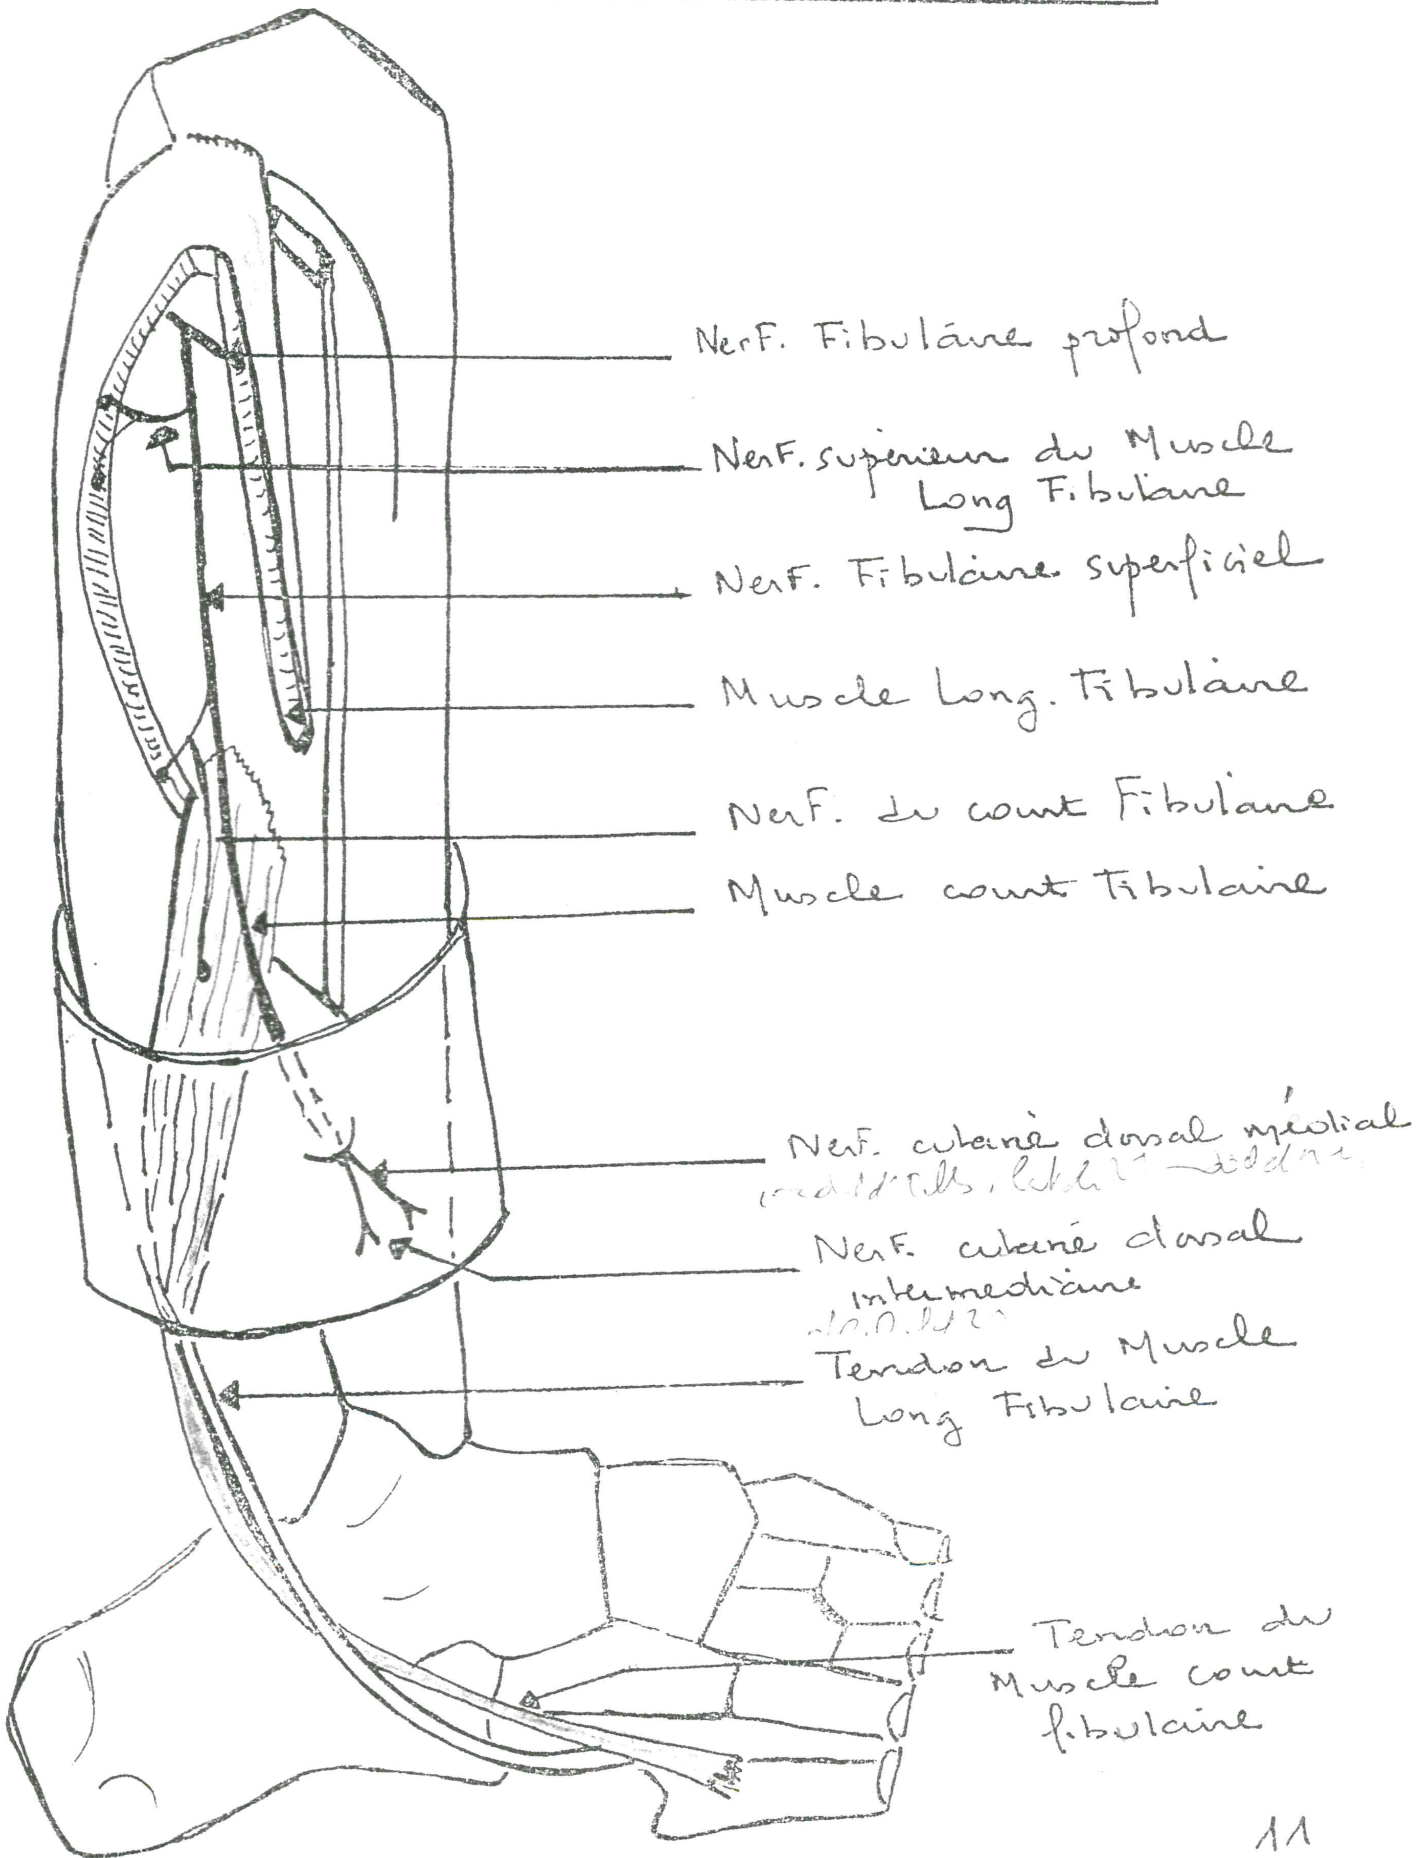 NerF. Fibulaire profond
NerF. supérieur du Muscle
Long Fibulaire
NerF. Fibulaire superficiel
Muscle Long. Fibulaire
NerF. du court Fibulaire
Muscle court Fibulaire
NerF. cutané dorsal médial
NerF. cutané dorsal
intermediaire
Tendon du Muscle
Long Fibulaire
Tendon du
Muscle court
fibulaire
11